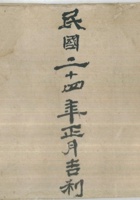 民國二十四年正月吉利